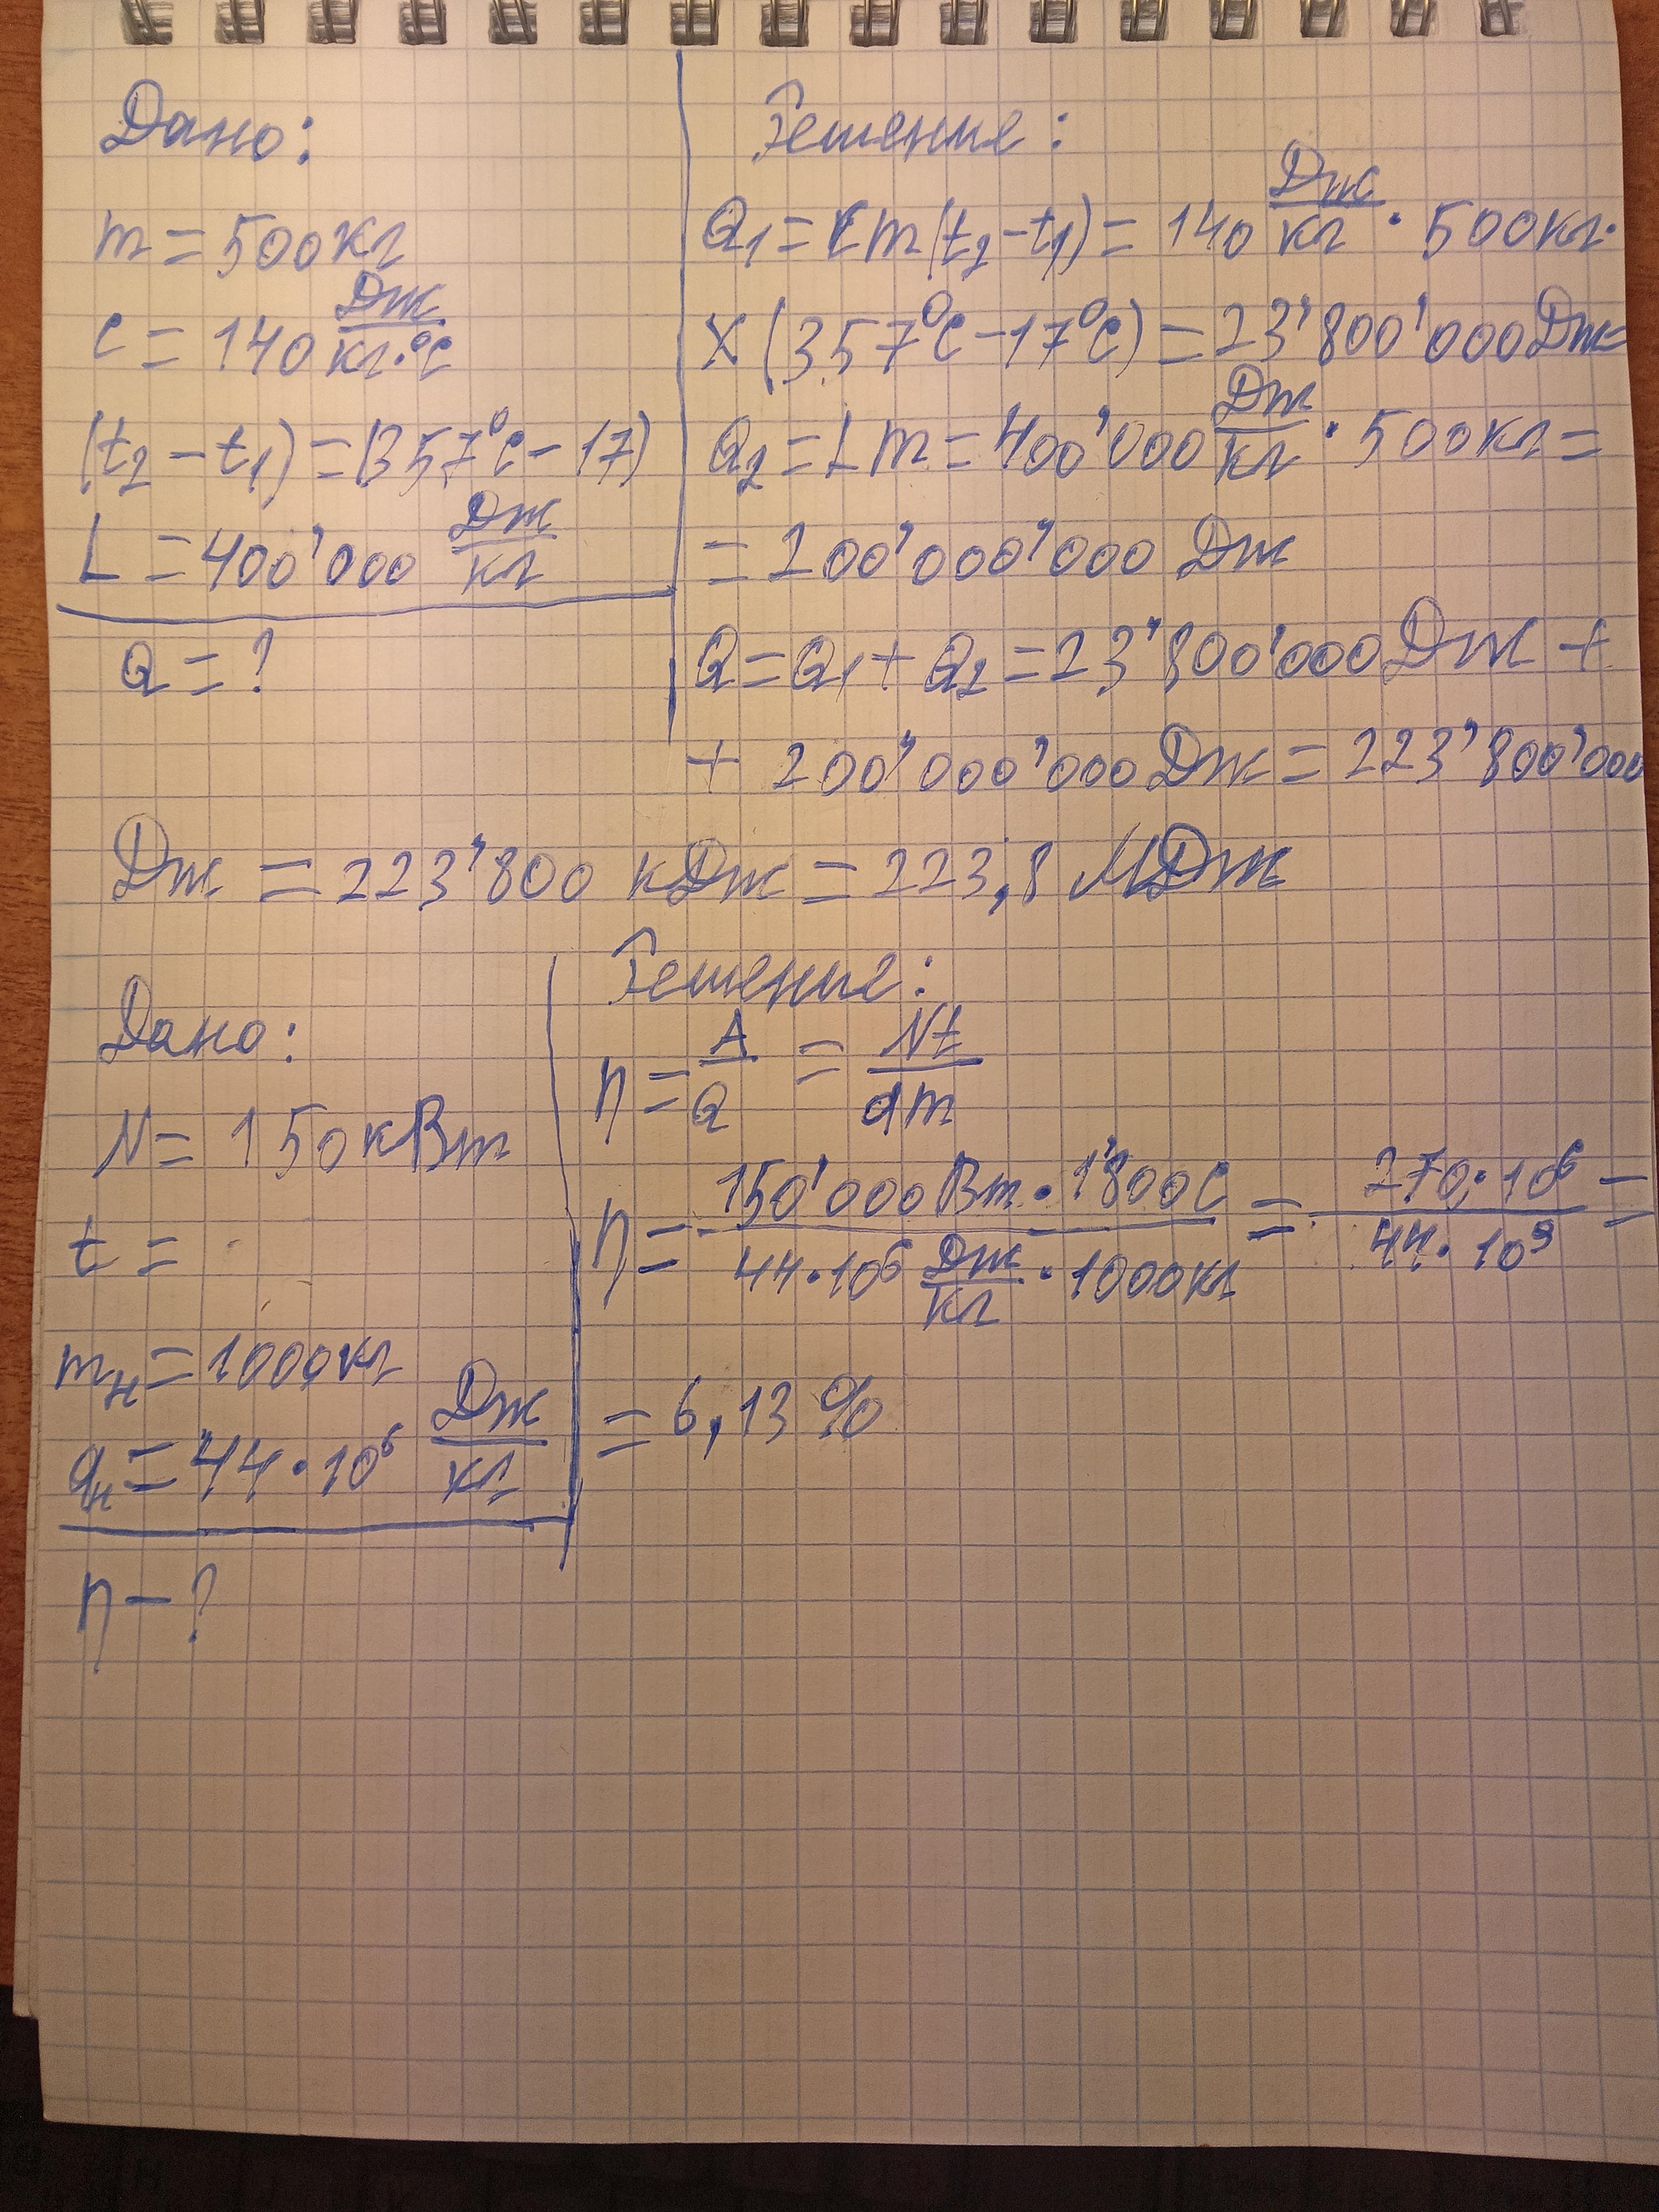 Дано:
m = 500 кг
c = 140 Дж/кг·°C
(t₂ – t₁) = (357°C – 17)
L = 400'000 Дж/кг
Q = ?
Решение:
Q₁ = cm(t₂ – t₁) = 140 Дж/кг · 500 кг ·
× (357°C – 17°C) = 23'800'000 Дж
Q₂ = Lm = 400'000 Дж/кг · 500 кг =
= 200'000'000 Дж
Q = Q₁ + Q₂ = 23'800'000 Дж +
+ 200'000'000 Дж = 223'800'000
Дж = 223'800 кДж = 223,8 МДж
Дано:
N = 150 кВт
t =
mн = 1000 кг
qн = 44·10⁶ Дж/кг
η – ?
Решение:
η = A/Q = Nt/qm
η = 150'000 Вт · 1'800 С / 44·10⁶ Дж/кг · 1000 кг = 270·10⁶ / 44·10⁹ =
= 6,13 %